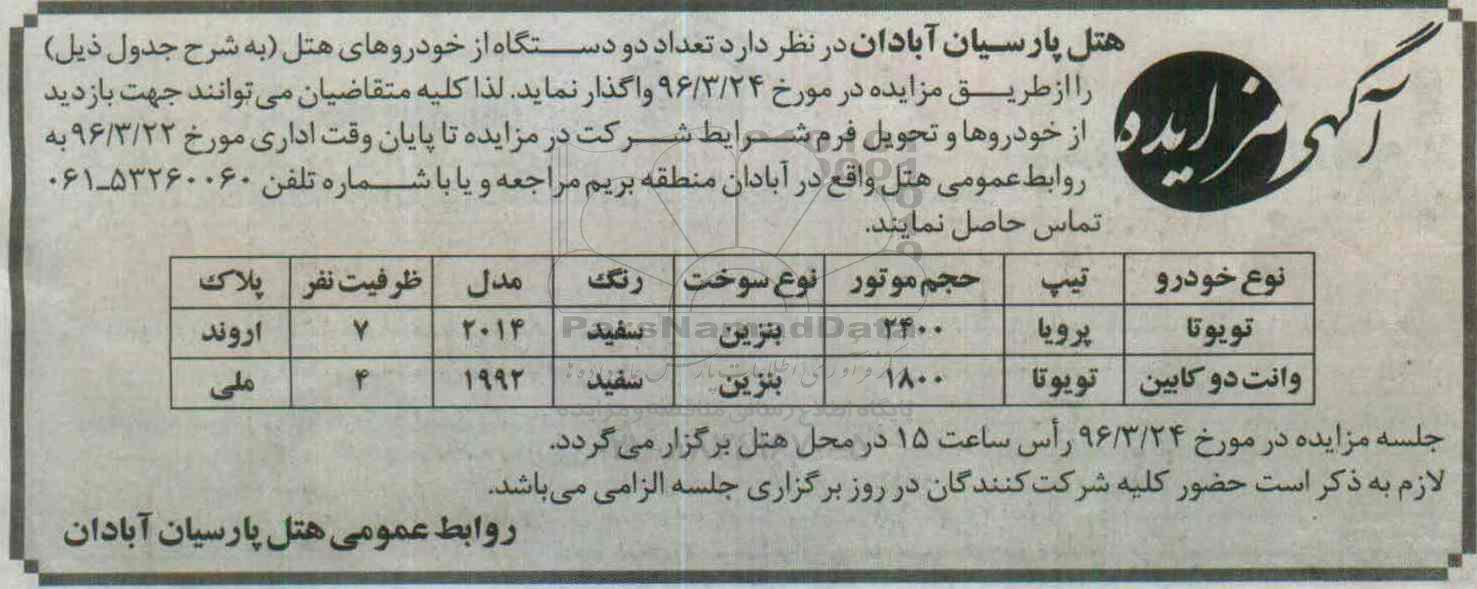 آگهی مزایده
هتل پارسیان آبادان در نظر دارد تعداد دو دستگاه از خودروهای هتل (به شرح جدول ذیل)
را از طریق مزایده در مورخ ۹۶/۳/۲۴ واگذار نماید. لذا کلیه متقاضیان می توانند جهت بازدید
از خودروها و تحویل فرم شرایط شرکت در مزایده تا پایان وقت اداری مورخ ۹۶/۳/۲۲ به
روابط عمومی هتل واقع در آبادان منطقه بریم مراجعه و یا با شماره تلفن ۰۶۱-۵۳۲۶۰۰۶۰
تماس حاصل نمایند.
نوع خودرو تیپ حجم موتور نوع سوخت رنگ مدل ظرفیت نفر پلاک
تویوتا پرویا ۲۴۰۰ بنزین سفید ۲۰۱۴ ۷ اروند
وانت دو کابین تویوتا ۱۸۰۰ بنزین سفید ۱۹۹۲ ۴ ملی
ParsNamadData
پایگاه اطلاع رسانی مناقصه و مزایده
جلسه مزایده در مورخ ۹۶/۳/۲۴ رأس ساعت ۱۵ در محل هتل برگزار می گردد.
لازم به ذکر است حضور کلیه شرکت کنندگان در روز برگزاری جلسه الزامی می باشد.
روابط عمومی هتل پارسیان آبادان